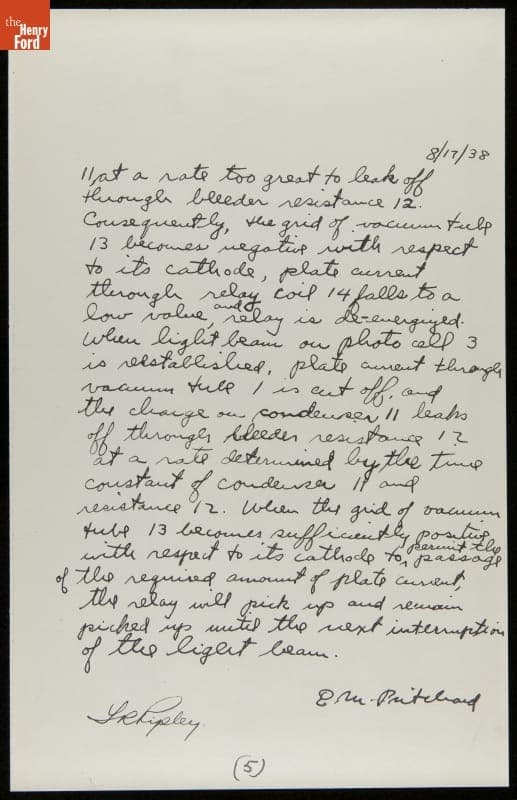 the
Henry
Ford
8/17/38
11, at a rate too great to leak off
through bleeder resistance 12.
Consequently, the grid of vacuum tube
13 becomes negative with respect
to its cathode, plate current
through relay coil 14 falls to a
low value, and relay is de-energized.
When light beam on photo cell 3
is reestablished, plate current through
vacuum tube 1 is cut off, and
the charge on condenser 11 leaks
off through bleeder resistance 12
at a rate determined by the time
constant of condenser 11 and
resistance 12. When the grid of vacuum
tube 13 becomes sufficiently positive
with respect to its cathode to permit the passage
of the required amount of plate current,
the relay will pick up and remain
picked up until the next interruption
of the light beam.
E M Pritchard
L R Ripley
(5)